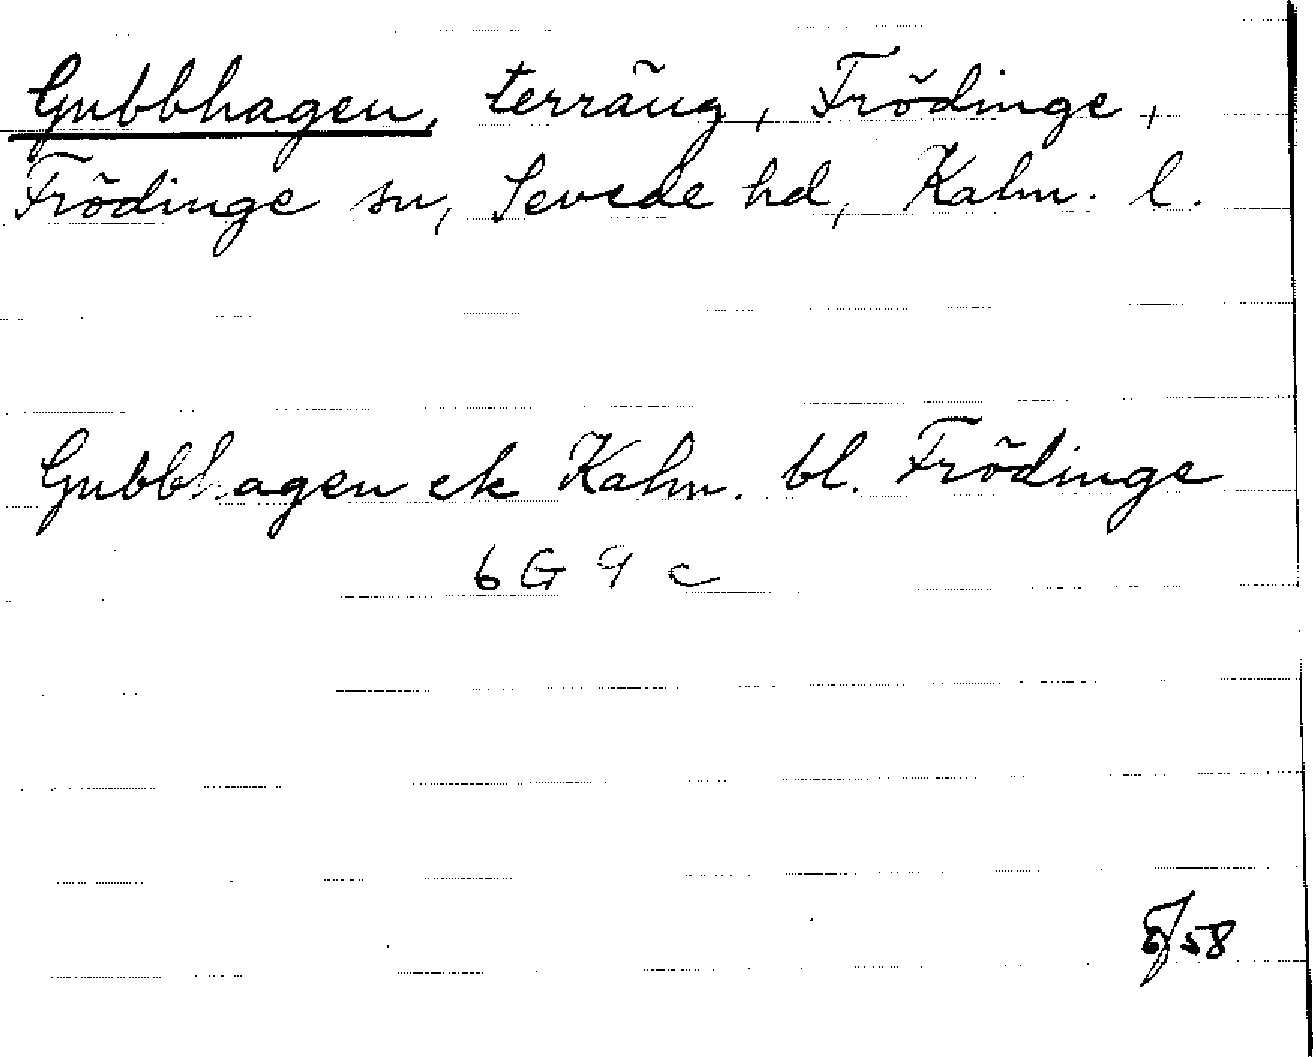 Gubbhagen, terräng, Frödinge,
Frödinge sn, Sevede hd, Kalm. l.
Gubbhagen ek Kalm. bl. Frödinge
6 G 9 c
58